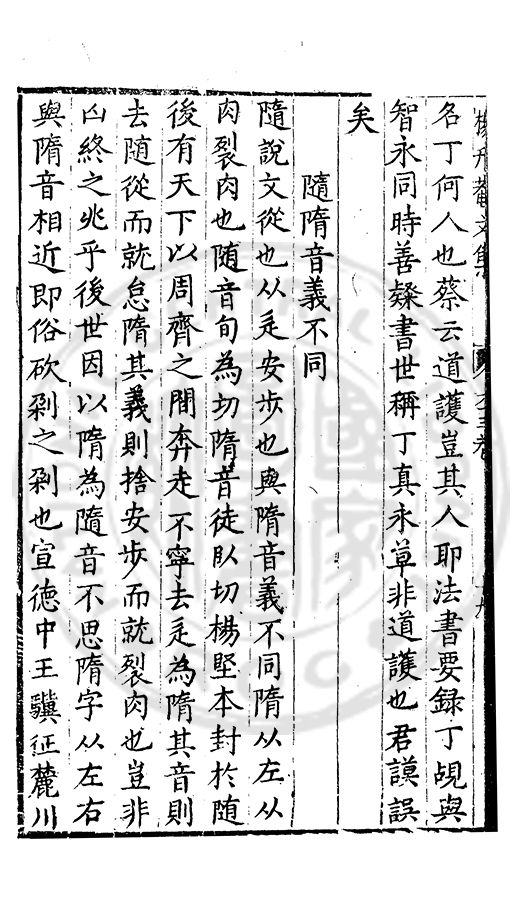 楊升菴文集 卷六十三卷
名丁何人也蔡云道護豈其人耶法書要録丁覘與
智永同時善隸書世稱丁真永草非道護也君謨誤
矣
隨隋音義不同
隨說文從也从辵安步也與隋音義不同隋从左从
肉裂肉也随音旬為切隋音徒臥切楊堅本封於随
後有天下以周齊之間奔走不寧去辵為隋其音則
去随從而就怠隋其義則捨安步而就裂肉也豈非
凶終之兆乎後世因以隋為隨音不思隋字从左右
與隋音相近即俗砍剁之剁也宣德中王驥征麓川